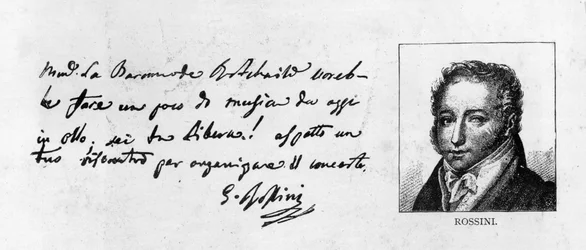 Mad. La Baronne de Rotschild voreb-
be fare un poco di musica da oggi
in otto, sei tu Libera! aspetto un
tuo riscontro per organizare il concerto.
G. Rossini
ROSSINI.